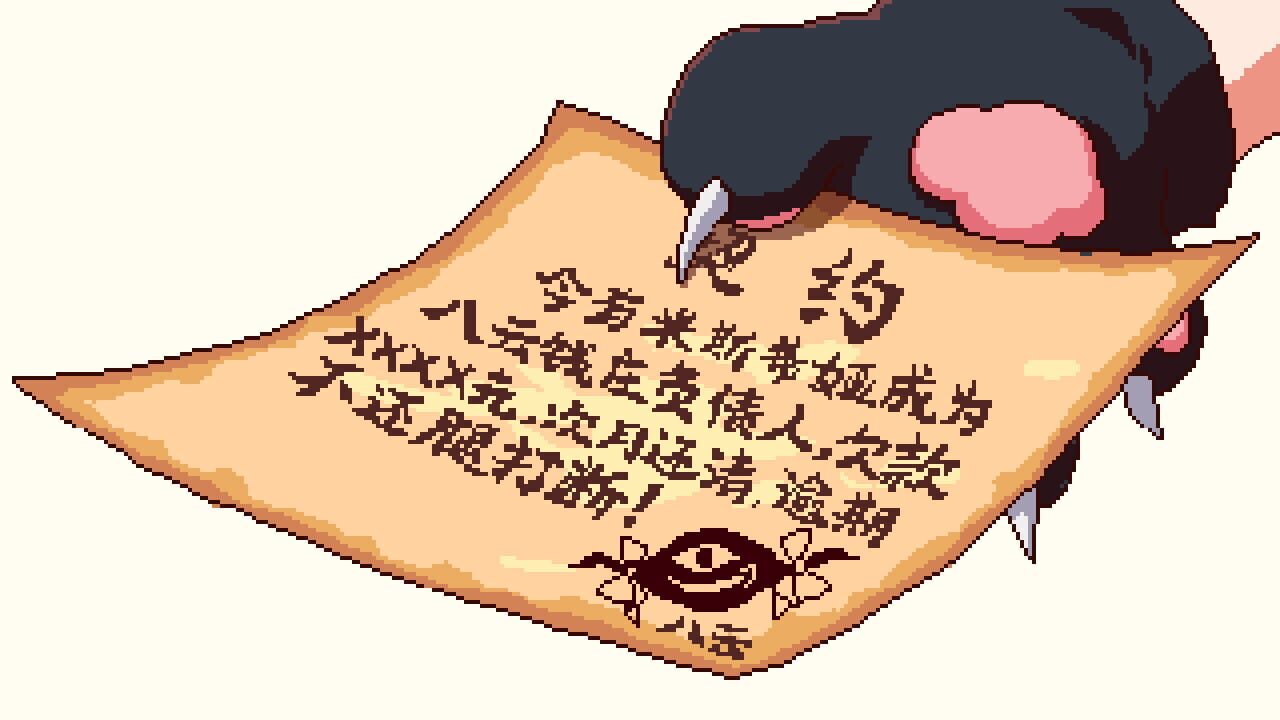 约
今有米斯蒂娅成为
八云钱庄负债人,欠款
XXXX元,次月还清,逾期
不还腿打断!
八云